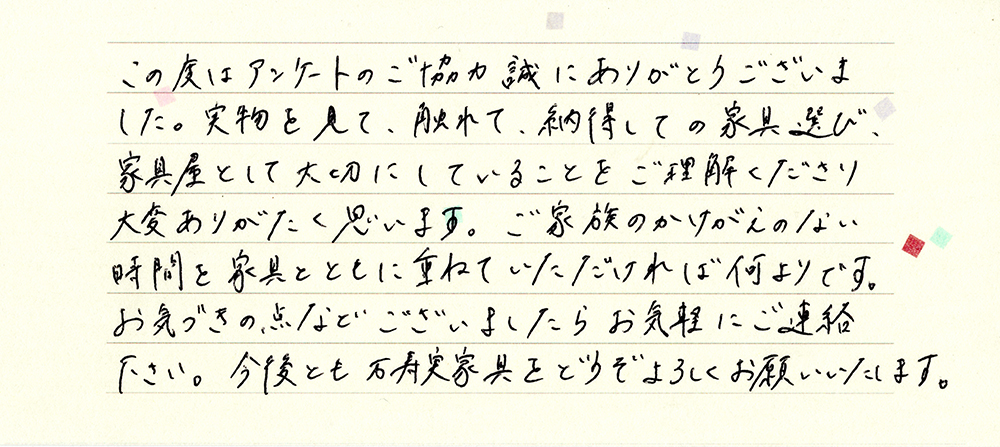 この度はアンケートのご協力誠にありがとうございま
した。実物を見て、触れて、納得しての家具選び、
家具屋として大切にしていることをご理解くださり
大変ありがたく思います。ご家族のかけがえのない
時間を家具とともに重ねていただければ何よりです。
お気づきの点などございましたらお気軽にご連絡
ださい。今後とも万寿実家具をどうぞよろしくお願いいたします。